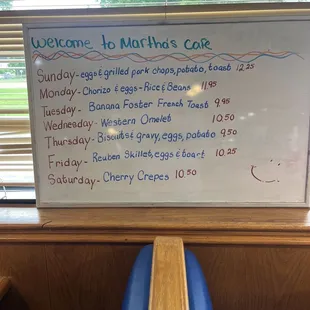 Welcome to Martha's Cafe
Sunday - eggs & grilled pork chops, potato, toast 12.25
Monday - Chorizo & eggs - Rice & Beans 11.95
Tuesday - Banana Foster French Toast 9.95
Wednesday - Western Omelet 10.50
Thursday - Biscuits & gravy, eggs, potato 9.50
Friday - Reuben Skillet, eggs & toast 10.25
Saturday - Cherry Crepes 10.50